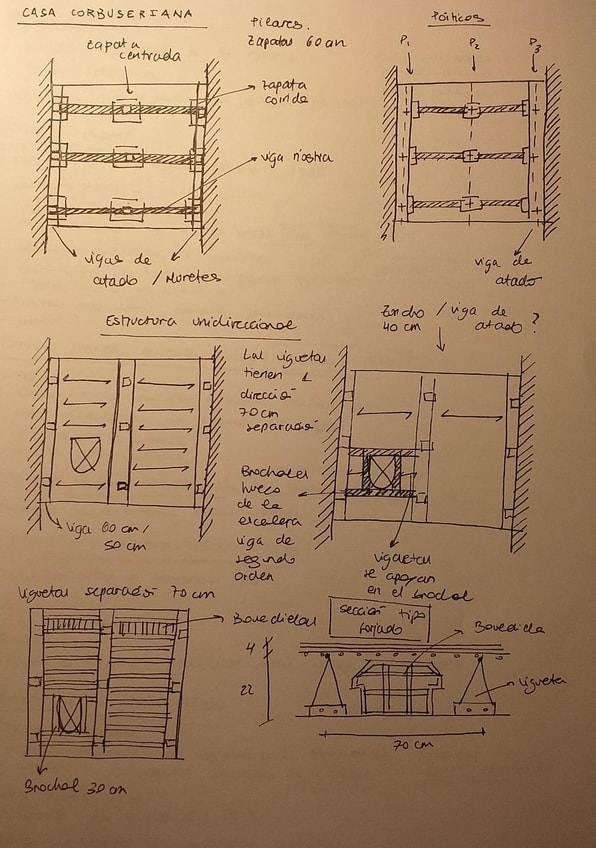 CASA CORBUSERIANA
Pilares.
Zapatas 60 cm
Pórticos
Zapata
centrada
P1
P2
P3
Zapata
viga riostra
vigas de
atado / Muretes
viga de
atado
Estructura unidireccional
Zuncho / viga de
40 cm atado?
Las viguetas
tienen 1
dirección
70 cm
separación
Brochales
hueco
de la
escalera
viga de
segundo
orden
Viga 60 cm /
50 cm
Viguetas
se apoyan
en el brochal
Viguetas separación 70 cm
Bovedillas
sección tipo
forjado
Bovedilla
4
22
Vigueta
70 cm
Brochal 30 cm